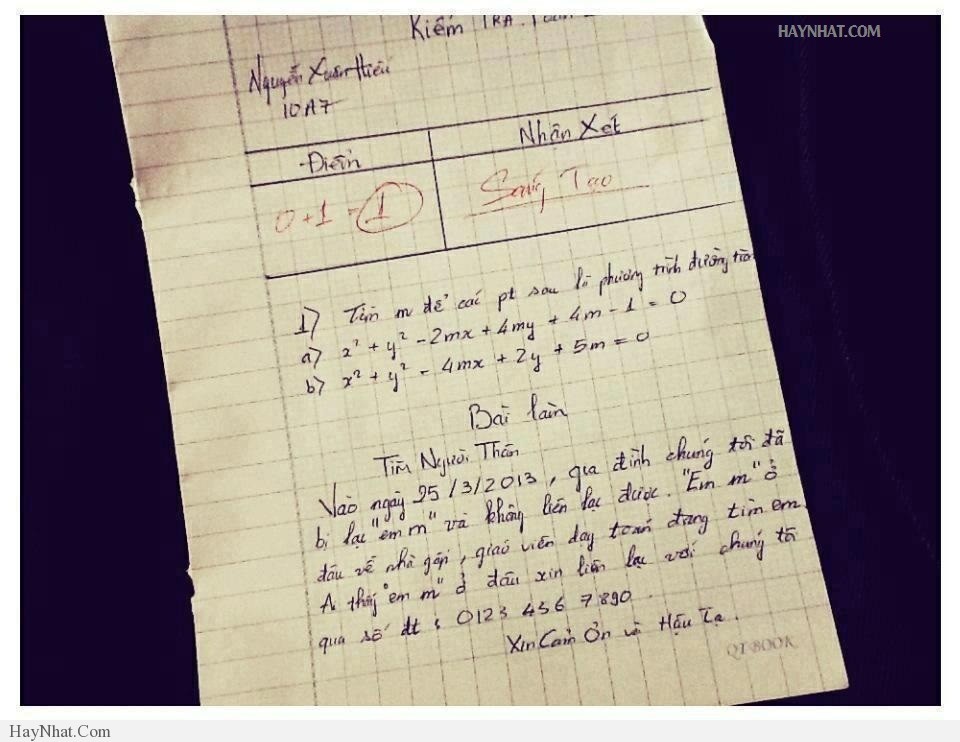 HAYNHAT.COM
Kiểm TRA Toán
Nguyễn Xuân Hiếu
10A7
Điểm
Nhận Xét
0 + 1 = 1
Sáng Tạo
1) Tìm m để các pt sau là phương trình đường tròn
a) x² + y² - 2mx + 4my + 4m - 1 = 0
b) x² + y² - 4mx + 2y + 5m = 0
Bài làm
Tìm Người Thân
Vào ngày 25/3/2013, gia đình chúng tôi đã
bị lạc "em m" và không liên lạc được. "Em m" ở
đâu về nhà gấp, giáo viên dạy toán đang tìm em.
Ai thấy "em m" ở đâu xin liên lạc với chúng tôi
qua số đt : 0123 456 7890.
Xin Cảm Ơn và Hậu Tạ.
QT BOOK
HayNhat.Com